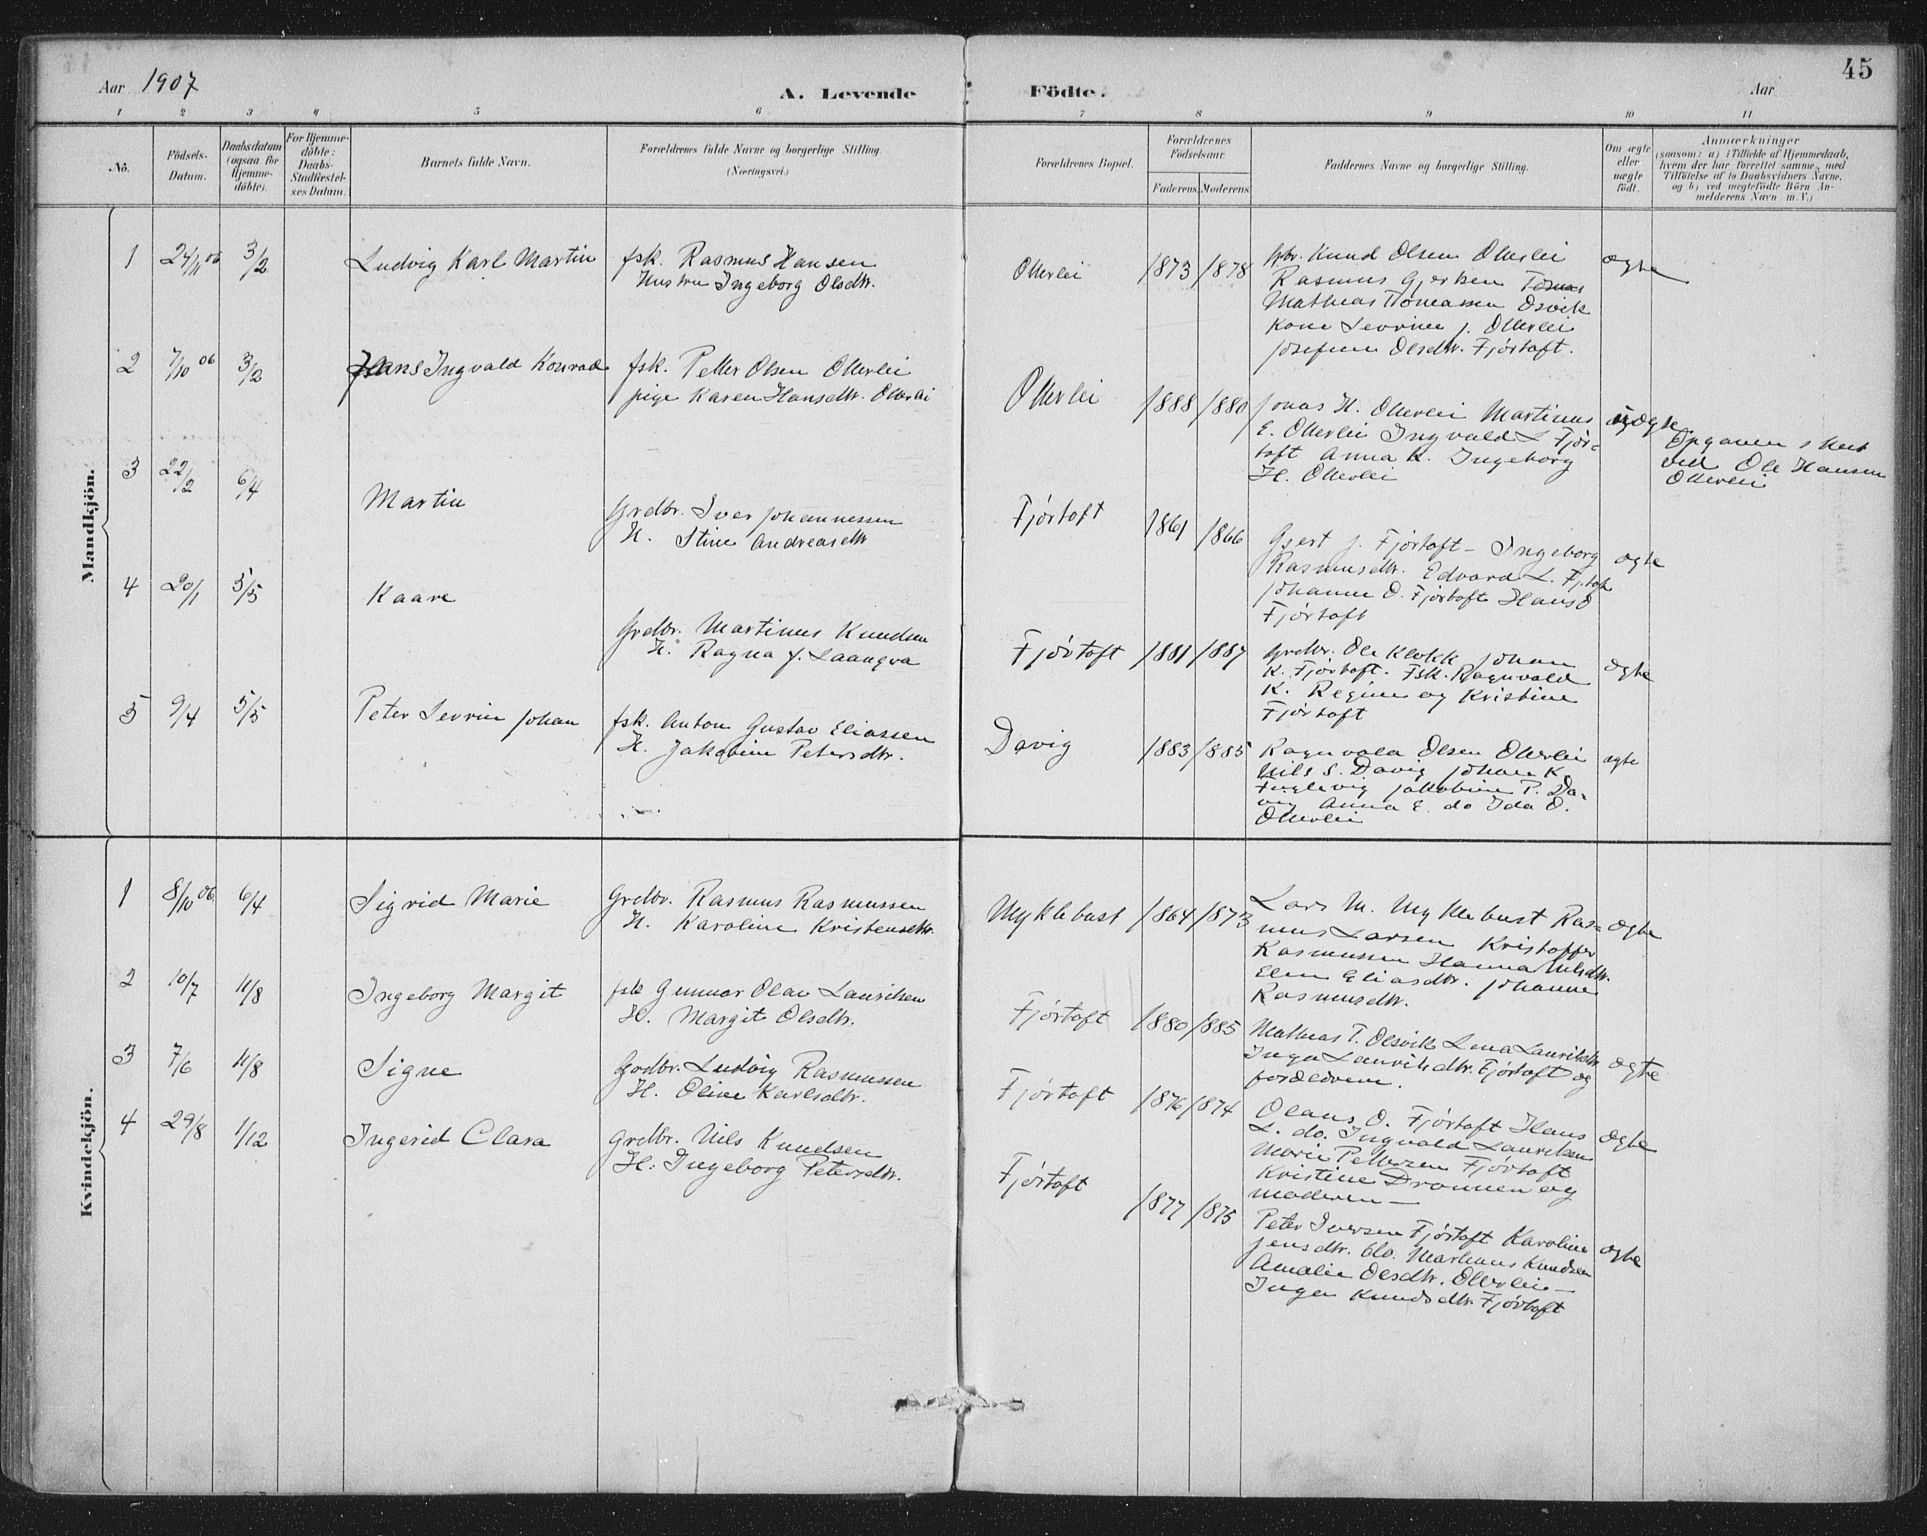 Aar 1907
A. Levende
Födte.
Aar
45
1 2 3 4 5 6 7 8 9 10 11
No.
Födsels-
Datum.
Daabsdatum
(ogsaa for
Hjemme-
döbte).
For Hjemme-
döbte:
Daabs-
Stadfæstel-
ses Datum.
Barnets fulde Navn.
Forældrenes fulde Navne og borgerlige Stilling
(Næringsvei.)
Forældrenes Bopæl.
Forældrenes
Födselsaar.
Faderens. Moderens.
Faddernes Navne og borgerlige Stilling.
Om ægte
eller
uægte
født.
Anmærkninger
(saasom: a) i Tilfælde af Hjemmedaab,
hvem der har forrettet samme, med
Tilföielse af to Daabsvidners Navne,
og b) ved uægtefödte Börn An-
melderens Navn m. V.)
Mandkjön.
1 24/11 06 3/2 Ludvig Karl Martin
fsk. Rasmus Hansen
Hustru Ingeborg Olsdtr.
Otterlei 1873 1878
gbr. Knud Olsen Otterlei
Rasmus Gjertsen Tomas
Mathias Tomassen Osvik
Kone Sevrine J. Otterlei
Josefine Olsdtr. Fjörtoft.
ægte
2 7/10 06 3/2 Hans Ingvald Konrad
fsk. Petter Olsen Otterlei
pige Karen Hansdtr. Otterlei
Otterlei 1888 1880
Jonas H. Otterlei Martinus
E. Otterlei Ingvald L Fjör-
toft Anna K. Ingeborg
H. Otterlei
uægte
Opgaven skeet
ved Ole Hansen
Otterlei
3 22/2 6/4 Martin
Grdbr. Iver Johannessen
H. Stine Andreasdtr
Fjörtoft 1861 1866
Gjert J. Fjörtoft - Ingeborg
Rasmusdtr. Edvard L. Fjtoft
Johanne O. Fjörtoft Hans O
Fjörtoft
ægte
4 20/1 5/5 Kaare
Grdbr. Martinus Knudsen
H. Ragna J. Laangva
Fjörtoft 1881 1887
Grdbr. Ole Klokk Johan
K. Fjörtoft. Fsk. Ragnvald
K. Regine og Kristine
Fjörtoft
ægte
5 9/4 5/5 Peter Sevrin Johan
fsk. Anton Gustav Eliassen
H. Jakobine Petersdtr.
Davig 1883 1885
Ragnvald Olsen Otterlei
Nils S. Davig Johan K.
Fuglevig Jakobine P. Da-
vig Anna E. do Ida O.
Otterlei
ægte
Kvindekjön.
1 8/10 06 6/4 Sigrid Marie
Grdbr. Rasmus Rasmussen
H. Karoline Kristensdtr.
Myklebust 1864 1873
Lars M. Myklebust Ras-
mus Larsen Kristoffer
Rasmussen Hanna Nilsdtr.
Elen Eliasdtr. Johanne
Rasmusdtr.
ægte
2 10/7 11/8 Ingeborg Margit
fsk Gunnar Olai Lauritsen
H. Margit Olsdtr.
Fjörtoft 1880 1885
Mathias T. Olsvik Lena Lauritsdtr
Inga Lauritsdtr. Fjörtoft og
forældrene.
ægte
3 7/6 11/8 Signe
Gardbr. Ludvig Rasmussen
H. Oline Karlsdtr.
Fjörtoft 1876 1874
Olaus O. Fjörtoft Hans
L. do. Ingvald Lauritsen
Marie Pettersen Fjörtoft
Kristine Dronnen og
moderen -
ægte
4 29/8 1/12 Ingerid Clara
Grdbr. Nils Knudsen
H. Ingeborg Petersdtr.
Fjörtoft 1877 1875
Peter Iversen Fjörtoft Karoline
Jensdtr. do. Martinus Knudsen
Amalie Olsdtr. Otterlei -
Inger Knudsdtr. Fjörtoft
ægte